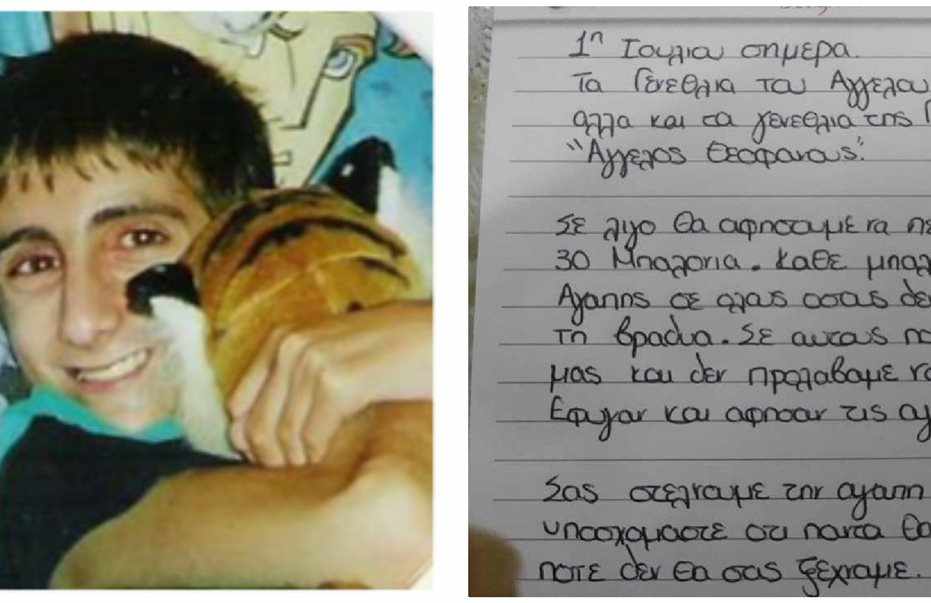 1η Ιουλιου σημερα.
Τα Γενεθλια του Αγγελου
αλλα και τα γενεθλια της
"Αγγελος Θεοφανους".
Σε λιγο θα αφησουμε να πε
30 Μπαλονια. Καθε μπαλ
Αγαπης σε ολους οσους δε
τη βραδυα. Σε αυτους πο
μας και δεν προλαβαμε να
Εφυγαν και αφησαν τις αγ
Σας στελνουμε την αγαπη
υποσχομαστε οτι παντα θα
ποτε δεν θα σας ξεχναμε.